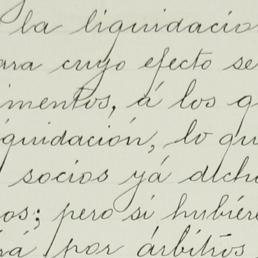 la liquidacio
ara cuyo efecto se
imentos, á los q
iquidación, lo qu
socios yá dicho
os; pero si hubiere
rá por árbitros